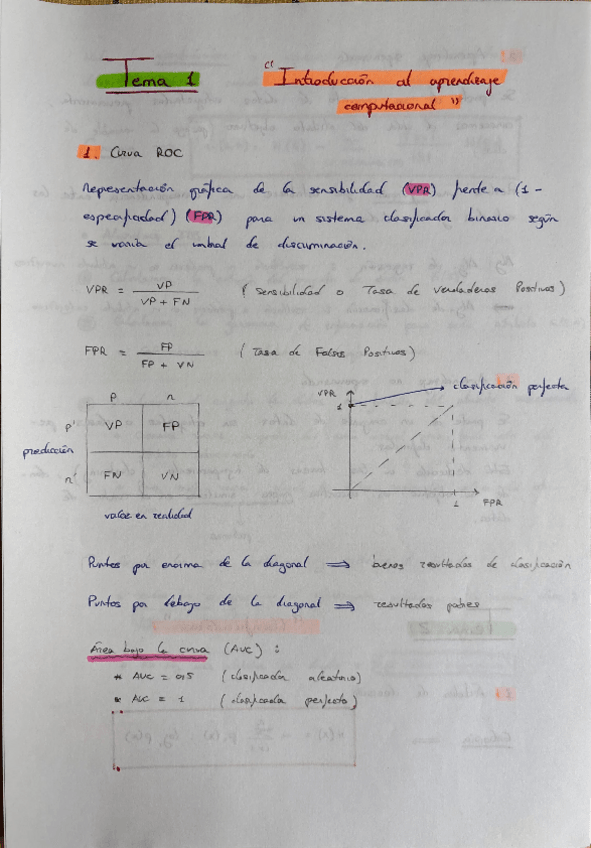 Tema 1 "Introducción al aprendizaje
computacional"
1. Curva ROC
Representación gráfica de la sensibilidad (VPR) frente a (1 -
especificidad) (FPR) para un sistema clasificador binario según
se varía el umbral de discriminación.
VPR = VP / VP + FN ( Sensibilidad o Tasa de Verdaderos Positivos )
FPR = FP / FP + VN ( Tasa de Falsos Positivos )
p n
p' VP FP
predicción
n' FN VN
valor en realidad
VPR clasificación perfecta
1
1 FPR
Puntos por encima de la diagonal ⇒ buenos resultados de clasificación
Puntos por debajo de la diagonal ⇒ resultados pobres
Área bajo la curva (AUC) :
* AUC = 0,5 ( clasificador aleatorio)
* AUC = 1 ( clasificador perfecto)